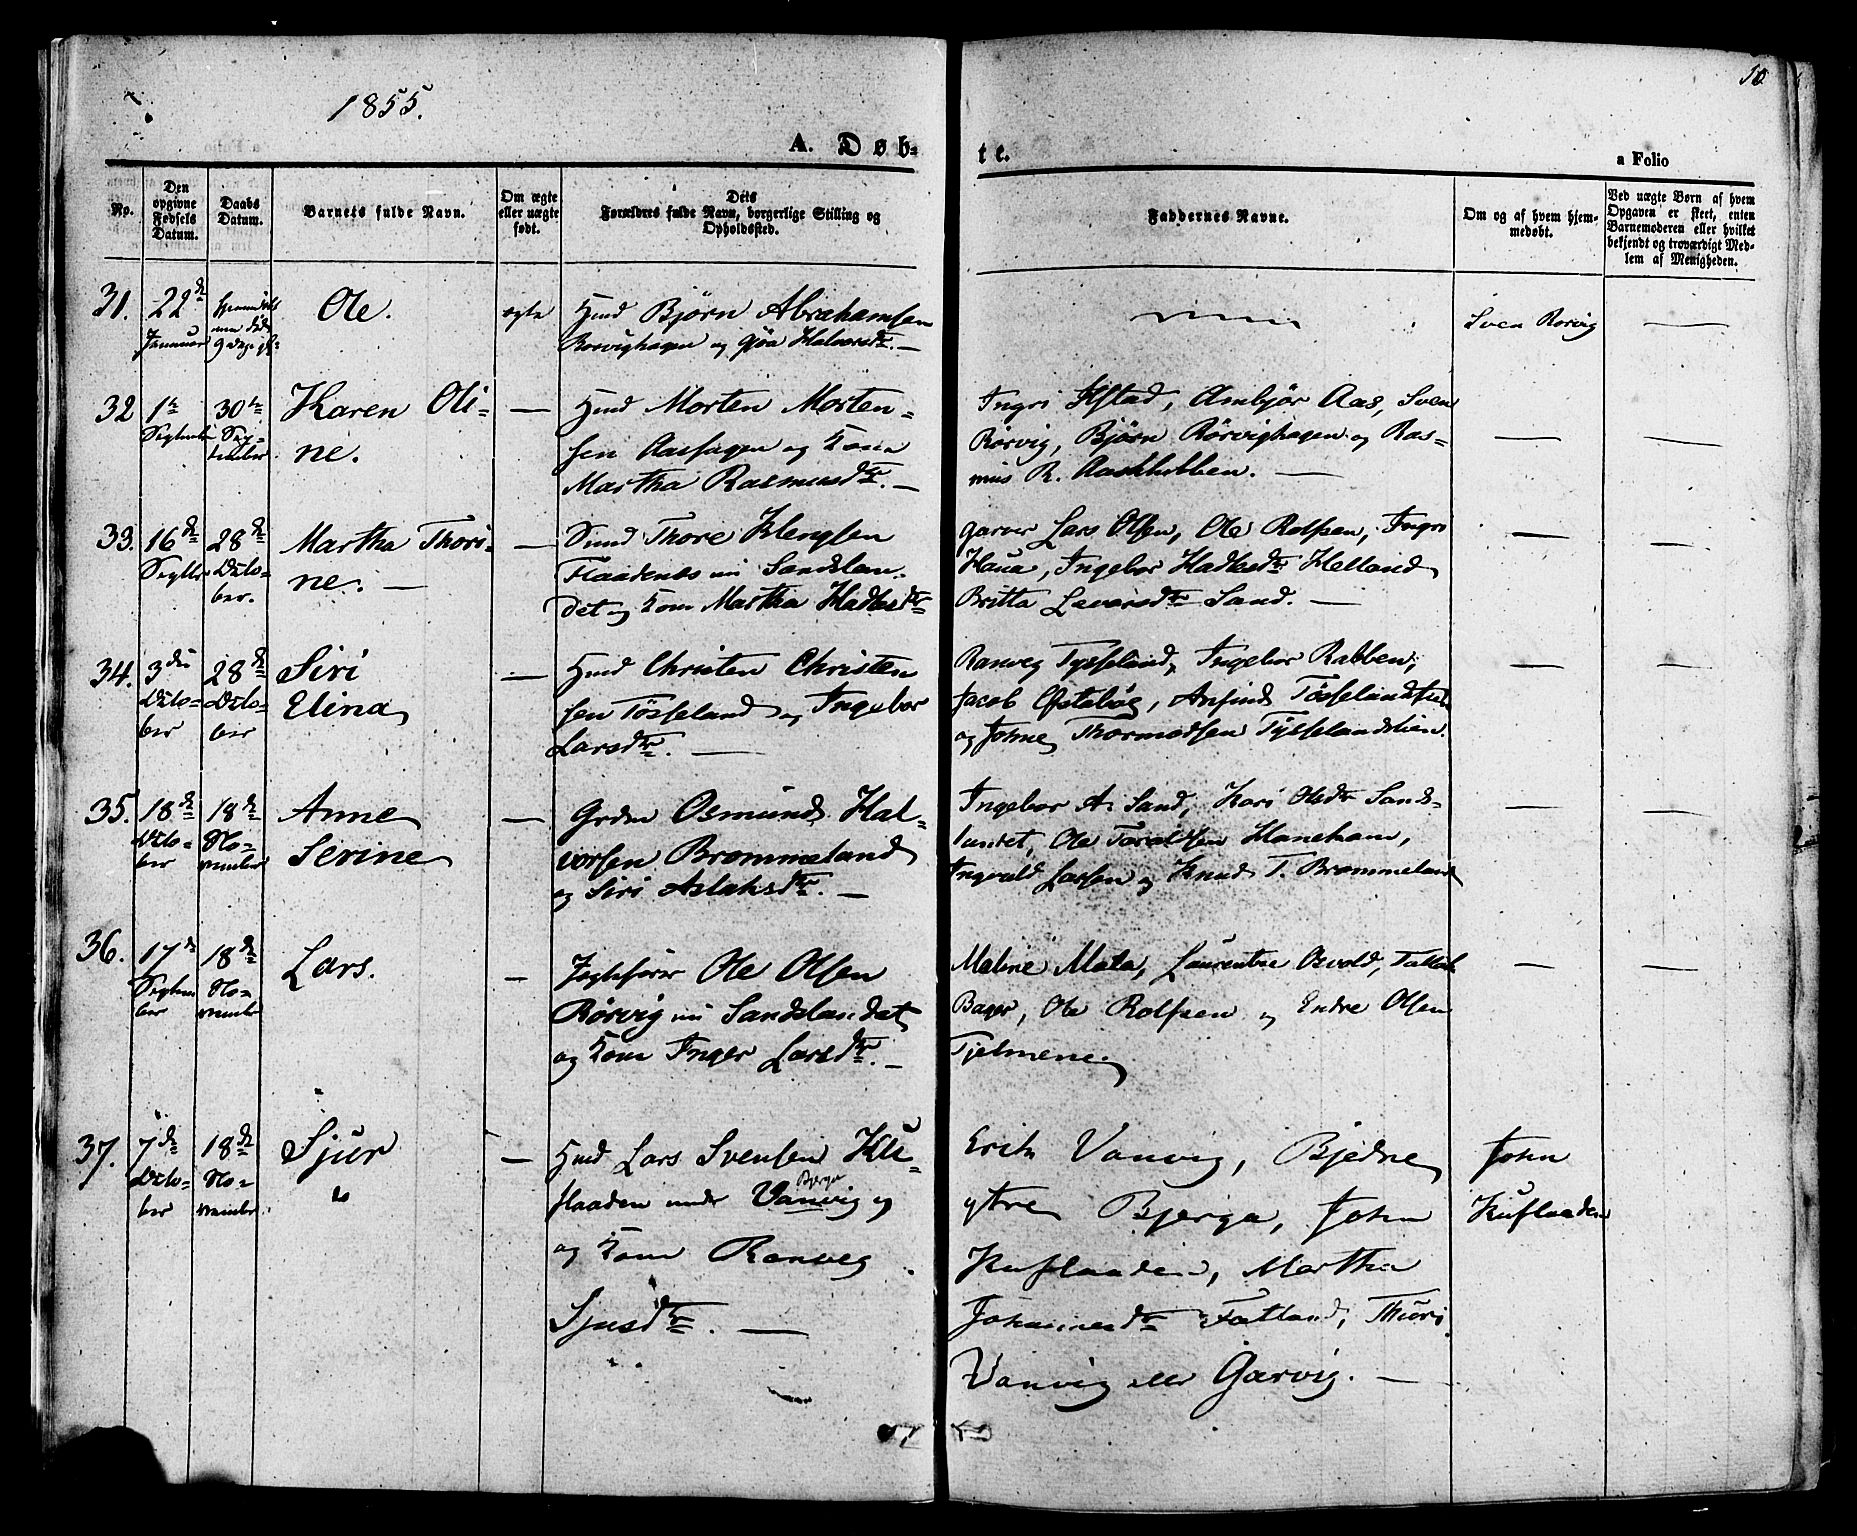 50
1855.
A. Døb-
te.
a Folio
No.
Den opgivne Fødsels Datum.
Daabs Datum.
Barnets fulde Navn.
Om ægte eller uægte født.
Dets Forældres fulde Navn, borgerlige Stilling og Opholdssted.
Faddernes Navne.
Om og af hvem hjemmedøbt.
Ved uægte Børn af hvem Opgaven er skeet, enten Barnemoderen eller hvilket bekjendt og troværdigt Medlem af Menigheden.
31.
22de Januar
Hjemmedøbt men døde 9 Dage gl.
Ole.
ægte
Hmd Bjørn Abrahamsen
Rørvighagen og Gjøa Halvorsdtr. —
Sven Rørvig
32
1ste September
30te September
Karen Oli-
ne.
—
Hmd Morten Morten-
sen Aashagen og Kone
Martha Rasmusdtr. —
Ingri Østad, Ambjør Aas, Sven
Rørvig, Bjørn Rørvighagen og Ras-
mus R. Aasklubben. —
33.
16de Septbr
28de October.
Martha Thori-
ne. —
—
Smd Thore Klengsen
Flaadenæs nu Sandslan-
det og Kone Martha Hadlesdtr
Garver Lars Olsen, Ole Rolfsen, Ingri
Haua, Ingebor Hadlesdtr Helland
Britta Leversdtr Sand. —
34.
3die October
28de October
Siri
Elina
—
Hmd Christen Christen
sen Tøsseland og Ingebor
Larsdtr. —
Ranveg Tysseland, Ingebor Rabben,
Jacob Østebøg, Anfind Tøsselandslien
og Johne Thormodsen Tysselandslien.
35.
18de October
18de November
Anne
Serine
—
Grdm Osmund Hal-
vorsen Brommeland
og Siri Aslaksdtr. —
Ingebor A. Sand, Kari Olesdtr Sands-
landet, Ole Toraldsen Hanekam,
Ingvald Larsen og Knud T. Brommeland
36.
17de September
18de November
Lars.
—
Jagtfører Ole Olsen
Rørvig nu Sandslandet
og Kone Inger Larsdtr. —
Maline Mala, Laurentse Osvold,
Bager, Ole Rolfsen og Endre Olsen
Tjelmene.
37.
7de October
18de November.
Sjur
—
Hmd Lars Svensen Ku-
flaaden under Vanvig og
Bjerga
og Kone Ranveg
Sjursdtr. —
Erik Vanvig, Bjedne
ytre Bjerga, John
Kuflaaden, Martha
Johannesdtr Fatland, Thuri
Vanvig eller Garvig. —
John
Kuflaaden